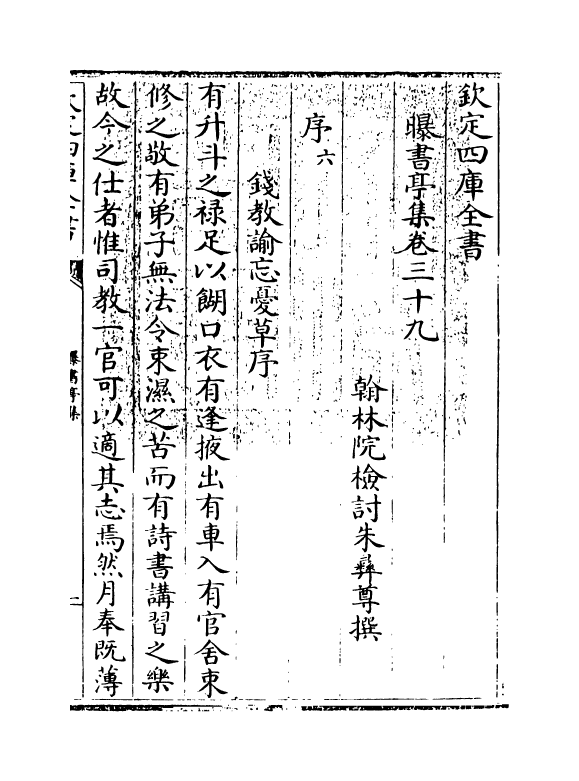 欽定四庫全書
曝書亭集卷三十九
翰林院檢討朱彝尊撰
序六
錢教諭忘憂草序
有升斗之禄足以餬口衣有逢掖出有車入有官舍束
修之敬有弟子無法令束濕之苦而有詩書講習之樂
故今之仕者惟司教一官可以適其志焉然月奉既薄
欽定四庫全書
曝書亭集